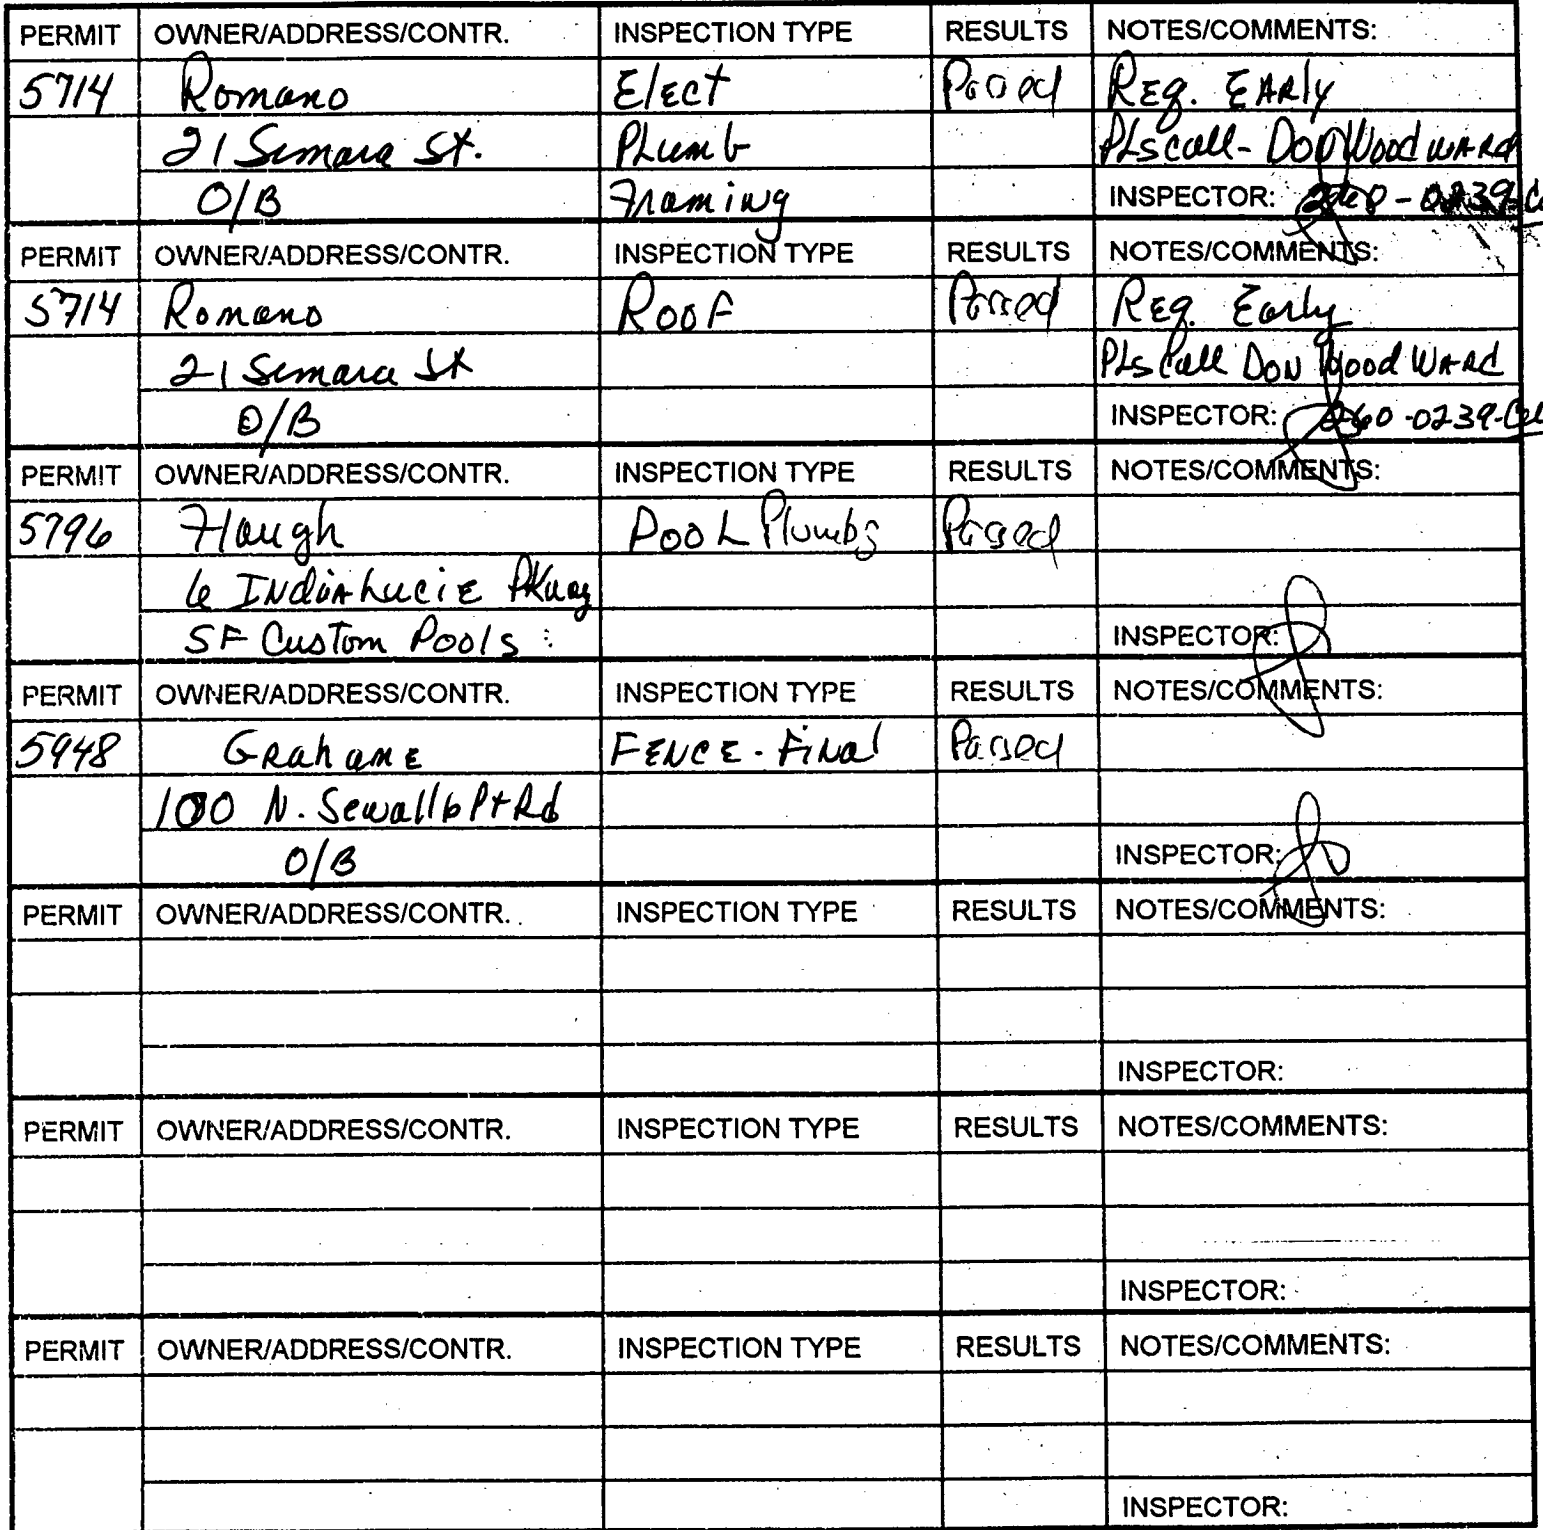 PERMIT OWNER/ADDRESS/CONTR. INSPECTION TYPE RESULTS NOTES/COMMENTS:
5714 Romano Elect Passed Req. EARly
21 Simara St. PLumb PLs call - Don WoodwARd
O/B Framing INSPECTOR: 260-0239-Cel
PERMIT OWNER/ADDRESS/CONTR. INSPECTION TYPE RESULTS NOTES/COMMENTS:
5714 Romano RooF Passed Req. Early
21 Simara St PLs Call Don WoodWARd
O/B INSPECTOR: 260-0239-Cel
PERMIT OWNER/ADDRESS/CONTR. INSPECTION TYPE RESULTS NOTES/COMMENTS:
5796 Haugh PooL Plumbg Passed
6 INdiaLuciE PKway
SF Custom Pools INSPECTOR:
PERMIT OWNER/ADDRESS/CONTR. INSPECTION TYPE RESULTS NOTES/COMMENTS:
5948 GRahamE FENCE - FiNal Passed
100 N. Sewalls Pt Rd
O/B INSPECTOR:
PERMIT OWNER/ADDRESS/CONTR. INSPECTION TYPE RESULTS NOTES/COMMENTS:
INSPECTOR:
PERMIT OWNER/ADDRESS/CONTR. INSPECTION TYPE RESULTS NOTES/COMMENTS:
INSPECTOR:
PERMIT OWNER/ADDRESS/CONTR. INSPECTION TYPE RESULTS NOTES/COMMENTS:
INSPECTOR: